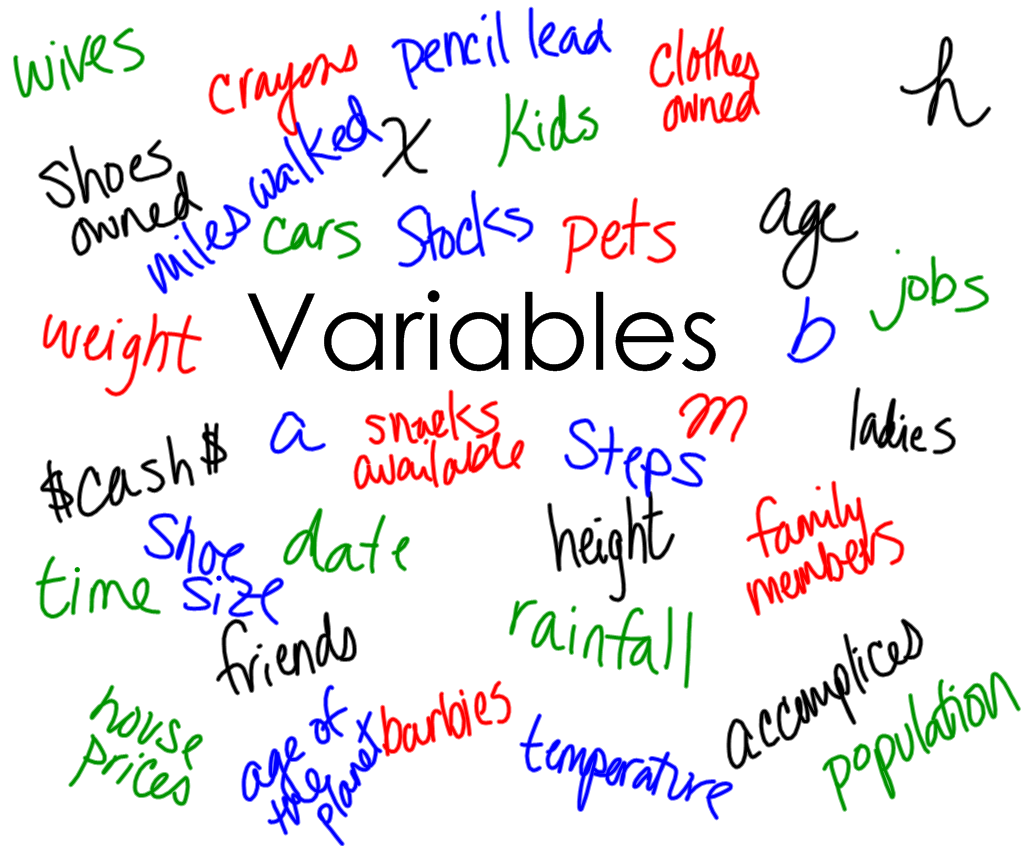 wives
crayons
pencil lead
clothes
owned
h
shoes
owned
miles walked
x
kids
cars
stocks
pets
age
jobs
weight
Variables
b
$cash$
a
snacks
available
steps
m
ladies
time
shoe
size
date
height
family
members
friends
rainfall
house
prices
age of
the
planet
barbies
temperature
accomplices
population